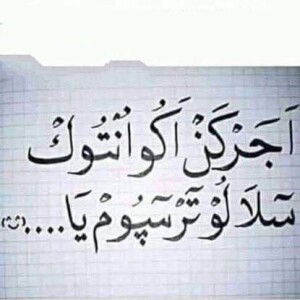 اَجَرْكَنْ اَكُو اُنْتُوكْ
سٓلَا لُوْ تَرْسٓپُومْ يَا....